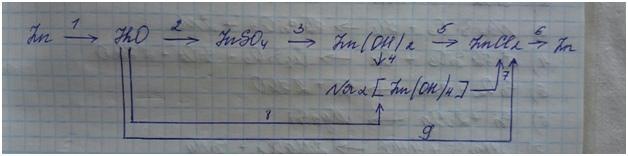 Zn 1→ ZnO 2→ ZnSO4 3→ Zn(OH)2 5→ ZnCl2 6→ Zn
↓4
Na2[Zn(OH)4] 7
8
9